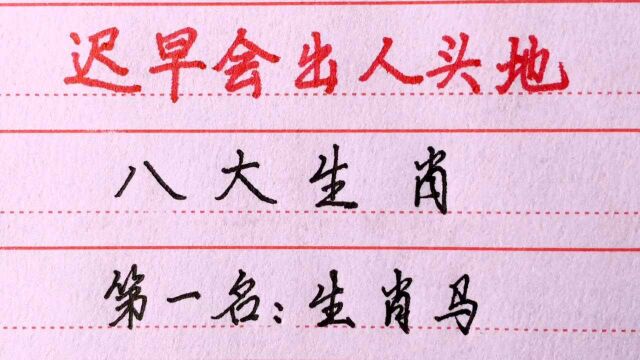 迟早会出人头地
八大生肖
第一名:生肖马